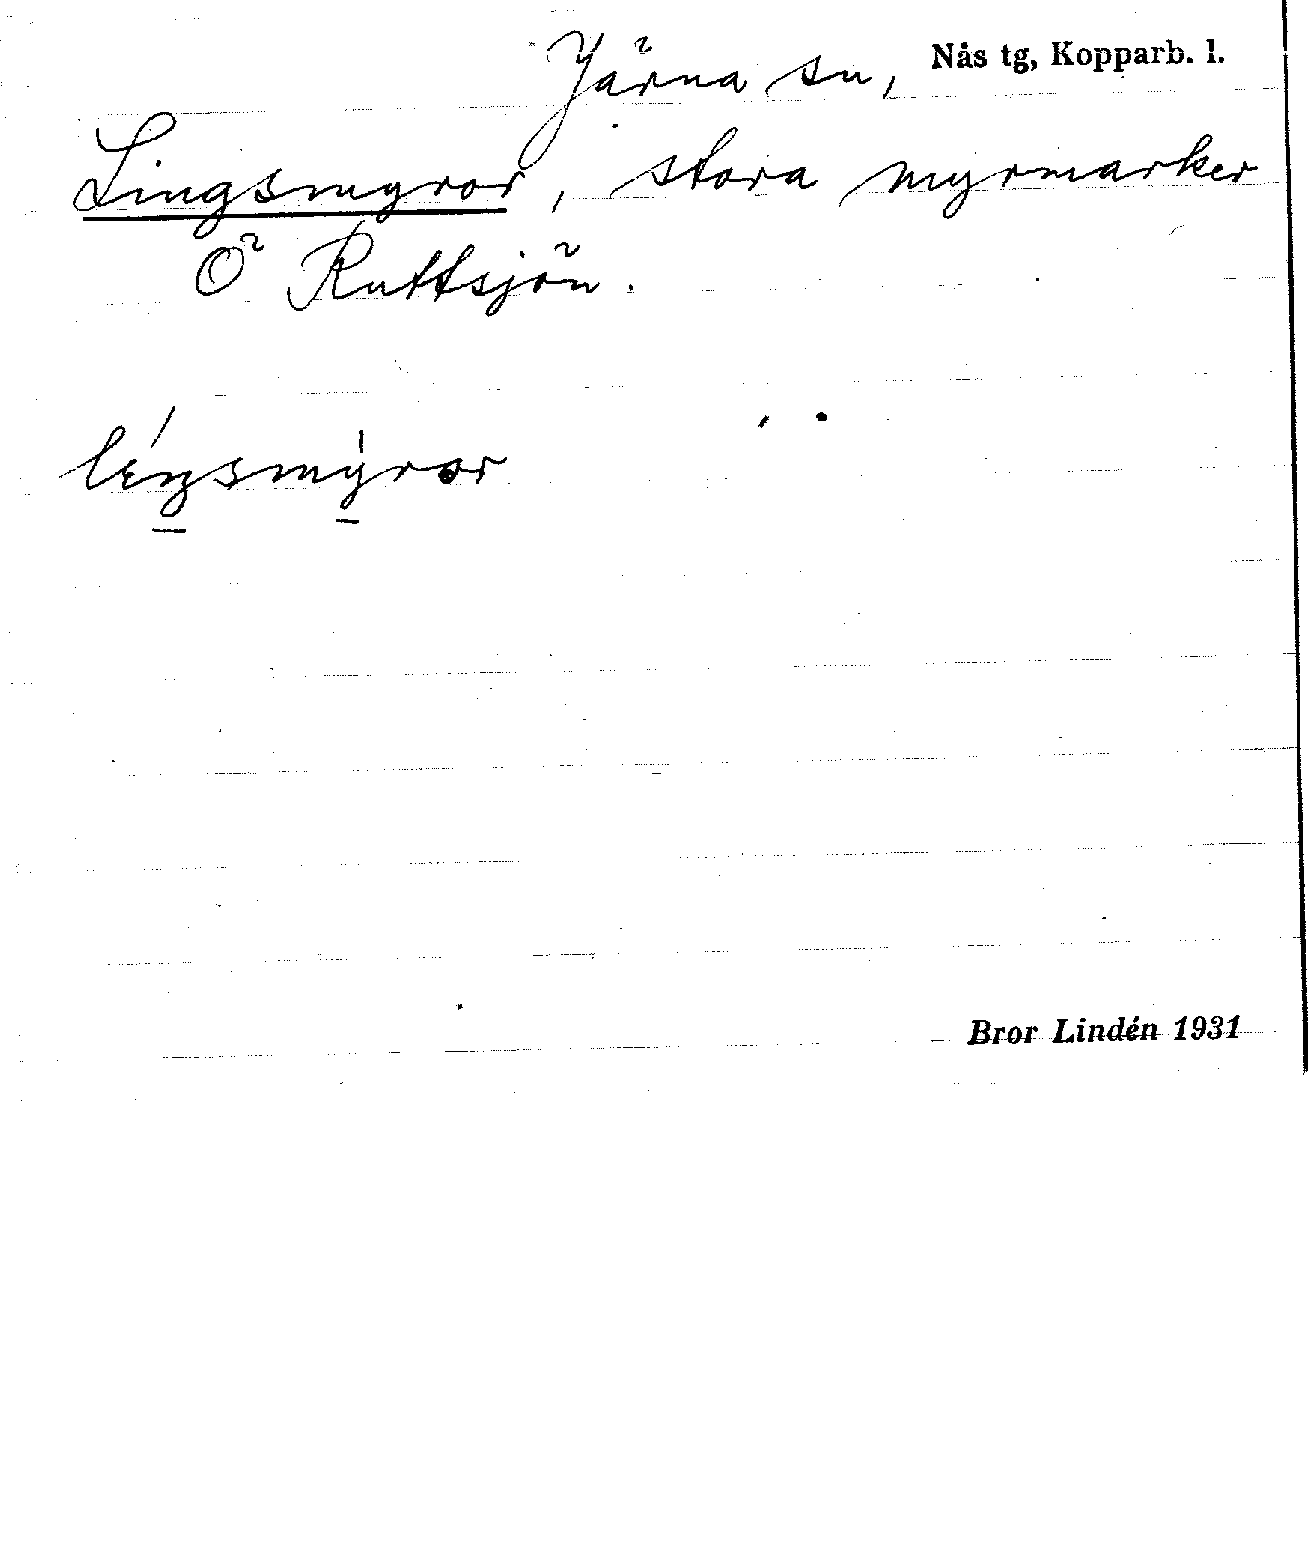 Järna sn, Nås tg, Kopparb. l.
Lingsmyror, stora myrmarker
Ö Ruttsjön.
léŋsmýror
Bror Lindén 1931